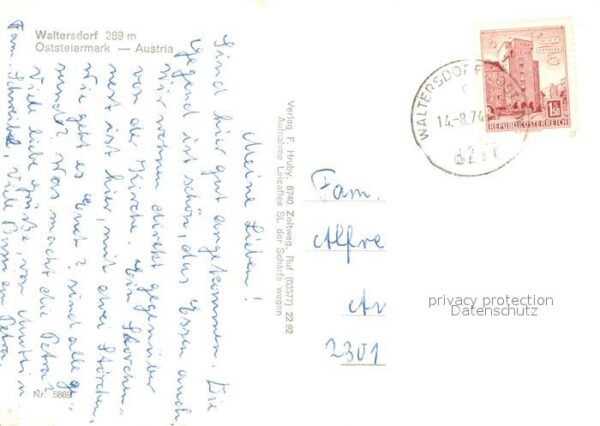 Waltersdorf 289 m
Oststeiermark — Austria
Meine Lieben!
Sind hier gut angekommen. Die
Gegend ist schön, das Essen auch.
Wir wohnen direkt gegenüber
von der Kirche. Ein Storchen-
nest ist hier, mit drei Störchen.
Wie geht es Euch? sind alle ge-
sund? Was macht die Petra?
Viele liebe Grüße, von Mutti u
Fam. Viele Bussi an Petra.
Nr. 5869
Verlag F. Hruby, 8740 Zeltweg, Ruf (03577) 22 92
Aufnahme Leicaflex SL der Schärfe wegen
WALTERSDORF
14.-8.74
REPUBLIK ÖSTERREICH
1.50
Fam.
Alfre
2301
privacy protection
Datenschutz